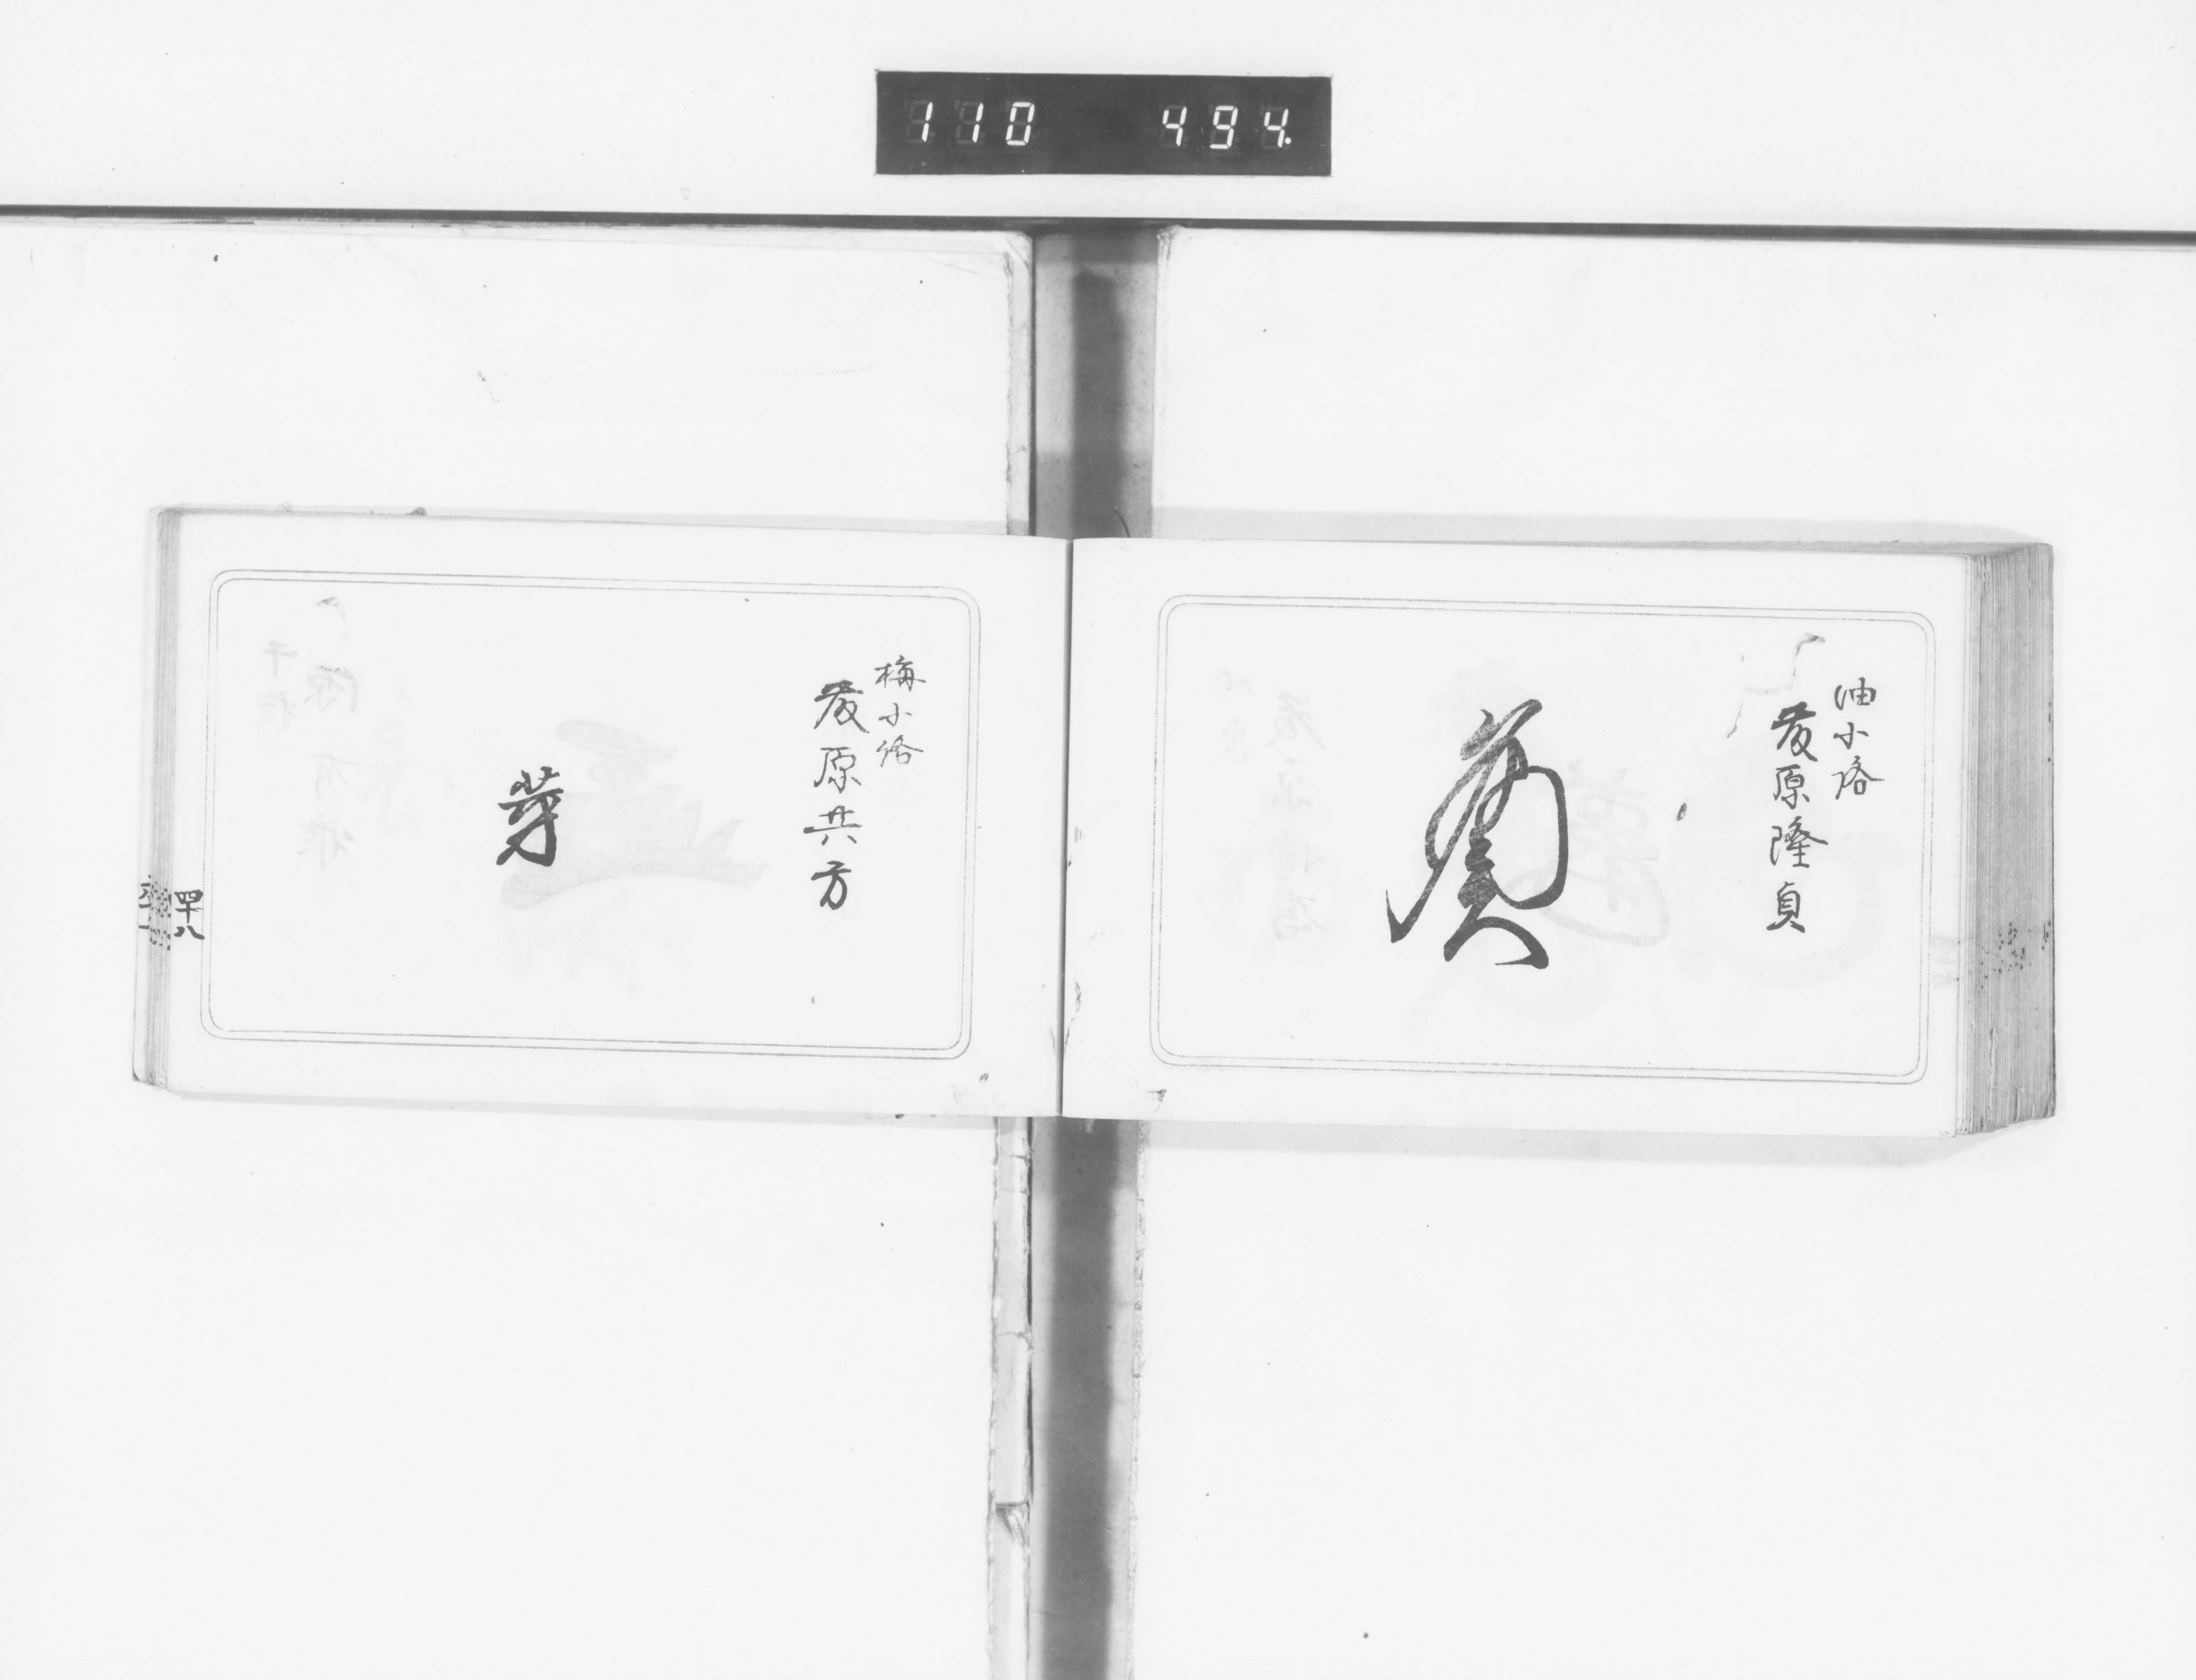 110 494.
油小路
藤原隆貞
梅小路
藤原共方
四十八